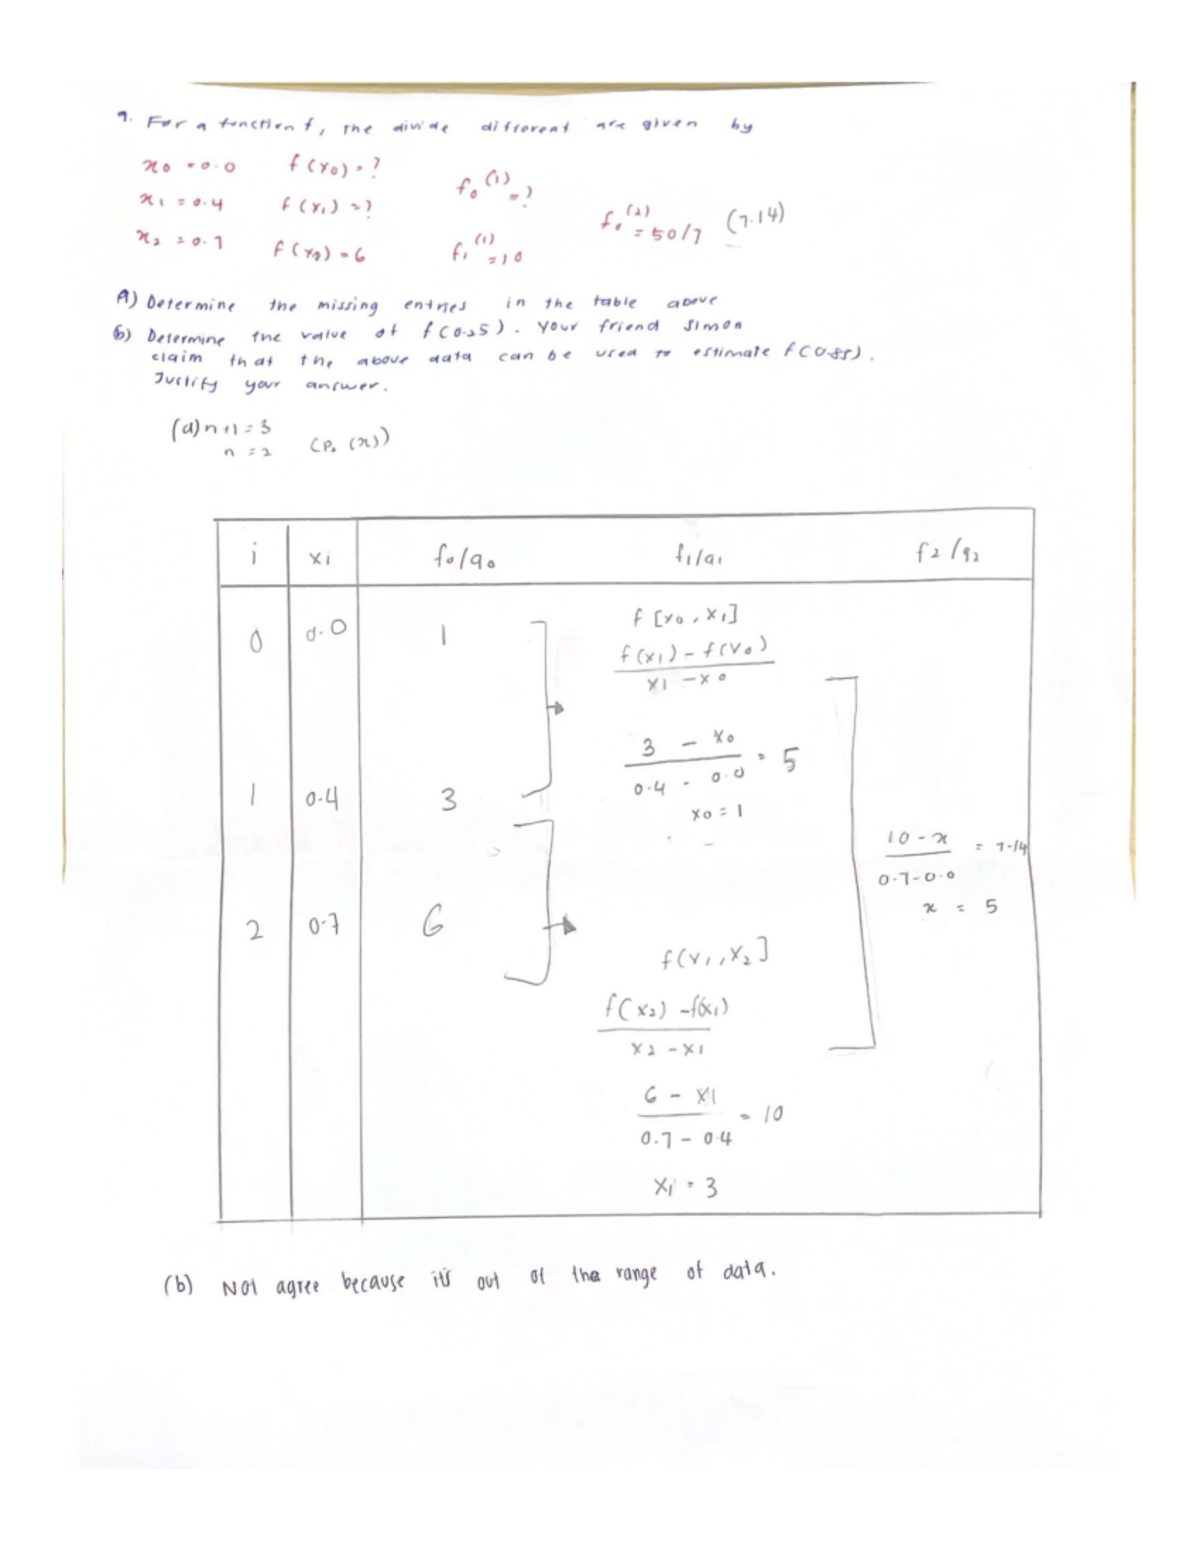 9. For a function f, the divide different are given by
x0 = 0.0 f(x0) = ?
f0^(1) = ?
x1 = 0.4 f(x1) = ?
f0^(2) = 50/7 (7.14)
x2 = 0.7 f(x2) = 6 f1^(1) = 10
A) Determine the missing entries in the table above
b) Determine the value of f(0.25). Your friend simon
claim that the above data can be used to estimate f(0.85).
Justify your answer.
(a) n+1 = 3
n = 2 (P2 (x))
i xi f0/a0 f1/a1 f2/a2
f[x0, x1]
0 0.0 1
f(x1) - f(x0)
x1 - x0
3 - x0
0.4 - 0.0 = 5
1 0.4 3
x0 = 1
10 - x
0.7-0.0 = 7.14
x = 5
2 0.7 6
f(x1, x2]
f(x2) - f(x1)
x2 - x1
6 - x1
0.7 - 0.4 = 10
x1 = 3
(b) Not agree because it's out of the range of data.